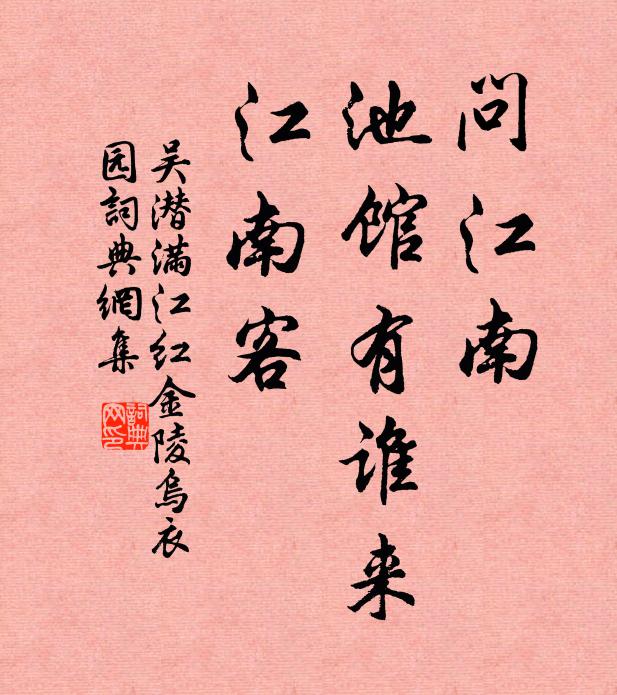 问江南
池馆有谁来
江南客
吴潜满江红金陵乌衣
园詞典網集
詞典
网印